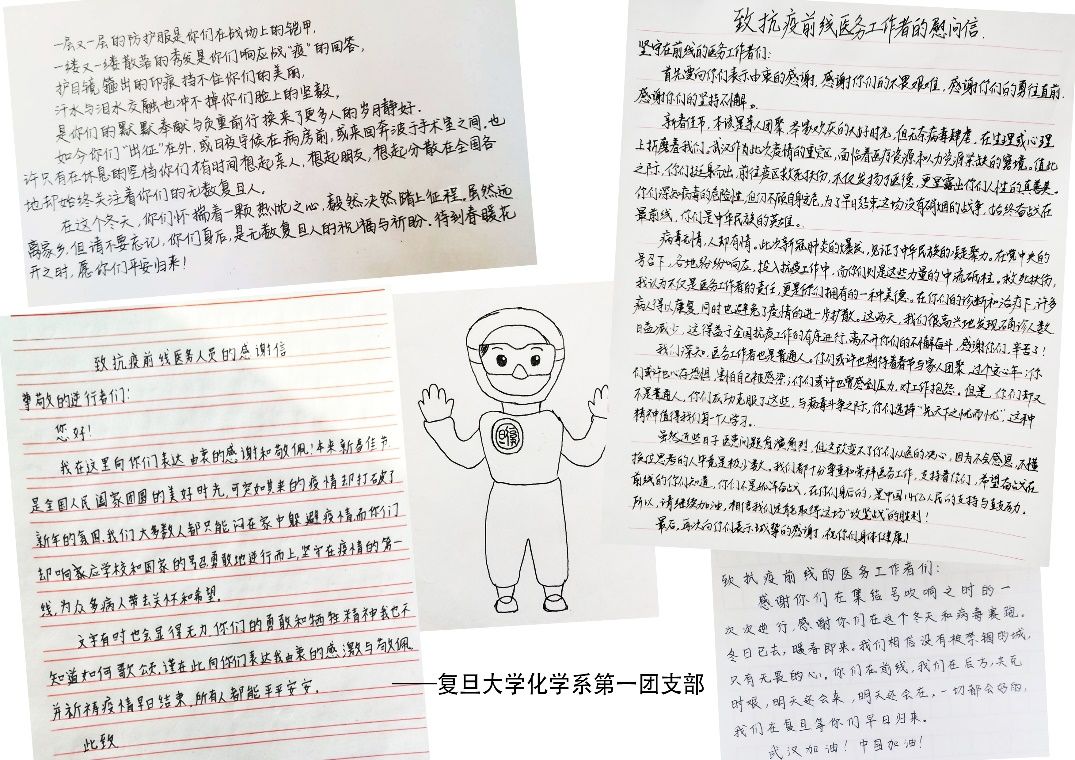 一层又一层的防护服是你们在战场上的铠甲,
一缕又一缕散落的秀发是你们响应战"疫"的回答,
护目镜箍出的印痕挡不住你们的美丽,
汗水与泪水交融也冲不掉你们脸上的坚毅,
是你们的默默奉献与负重前行换来了更多人的岁月静好.
如今你们"出征"在外,或日夜守候在病房前,或来回奔波于手术室之间,也
许只有在休息的空档你们才有时间想起亲人,想起朋友,想起分散在全国各
地却始终关注着你们的无数复旦人.
在这个冬天,你们怀揣着一颗热忱之心,毅然决然踏上征程,虽然远
离家乡,但请不要忘记,你们身后,是无数复旦人的祝福与祈盼.待到春暖花
开之时,愿你们平安归来!
致抗疫前线医务工作者的慰问信.
坚守在前线的医务工作者们:
首先要向你们表示由衷的感谢,感谢你们的不畏艰难,感谢你们的勇往直前,
感谢你们的坚持不懈。
新春佳节,本该是亲人团聚、举家欢庆的大好时光,但无奈病毒肆虐,在生理或心理
上折磨着我们。武汉作为此次疫情的重灾区,面临着医疗资源和人力资源紧缺的窘境。值此
之际,你们挺身而出,前往疫区救死扶伤,不仅发扬了医德,更显露出你们人性的真善美。
你们深知病毒的危险性,但仍不顾自身安危,为了早日结束这场没有硝烟的战争,始终奋战在
最前线,你们是中华民族的英雄。
病毒无情,人却有情。此次新冠肺炎的爆发,见证了中华民族的凝聚力。在党中央的
号召下,各地纷纷响应,投入抗疫工作中,而你们则是这些力量的中流砥柱。救死扶伤,
我认为不仅是医务工作者的责任,更是你们拥有的一种美德。在你们的诊断和治疗下,许多
病人得以康复,同时也避免了疫情的进一步扩散。这两天,我们很高兴地发现确诊人数
日益减少,这得益于全国抗疫工作的有序进行,离不开你们的不懈奋斗,感谢你们,辛苦了!
我们深知,医务工作者也是普通人。你们或许也期待着春节与家人团聚,过个安心年;你
们或许也心存恐惧,害怕自己被感染;你们或许也曾感到压力,对工作抱怨。但是,你们却又
不是普通人,你们成功克服了这些,与病毒斗争之际,你们选择"先天下之忧而忧",这种
精神值得我们每个人学习。
虽然近些日子医患问题有痛有刺,但这改变不了你们从医的决心,因为不会感恩、不懂
换位思考的人毕竟是极少数。我们都十分尊重和崇拜医务工作,支持着你们,希望奋战在
前线的你们知道,你们不是孤军奋战,在你们身后的,是中国14亿人民的支持与直支力。
所以,请继续加油,相信我们定能取得这场"攻坚战"的胜利!
最后,再次向你们表示诚挚的感谢,祝你们身体健康!
致抗疫前线医务人员的感谢信
尊敬的逆行者们:
您好!
我在这里向你们表达由衷的感谢和敬佩!本来新春佳节
是全国人民阖家团圆的美好时光,可突如其来的疫情却打破了
新年的氛围.我们大多数人都只能闷在家中躲避疫情而你们
却响应学校和国家的号召勇敢地逆行而上,坚守在疫情的第一
线,为众多病人带去关怀和希望.
文字有时也会显得无力,你们的勇敢和牺牲精神我也不
知道如何歌颂,谨在此向你们表达我由衷的感激与敬佩,
并祈祷疫情早日结束,所有人都能平平安安.
此致
——复旦大学化学系第一团支部
致抗疫前线的医务工作者们:
感谢你们在集结号吹响之时的一
次次逆行,感谢你们在这个冬天和病毒赛跑。
冬日已去,暖春即来。我们相信没有被禁锢的城,
只有无畏的心。你们在前线,我们在后方,共克
时艰,明天还会来,明天还会在,一切都会好的,
我们在复旦等你们早日归来。
武汉加油!中国加油!